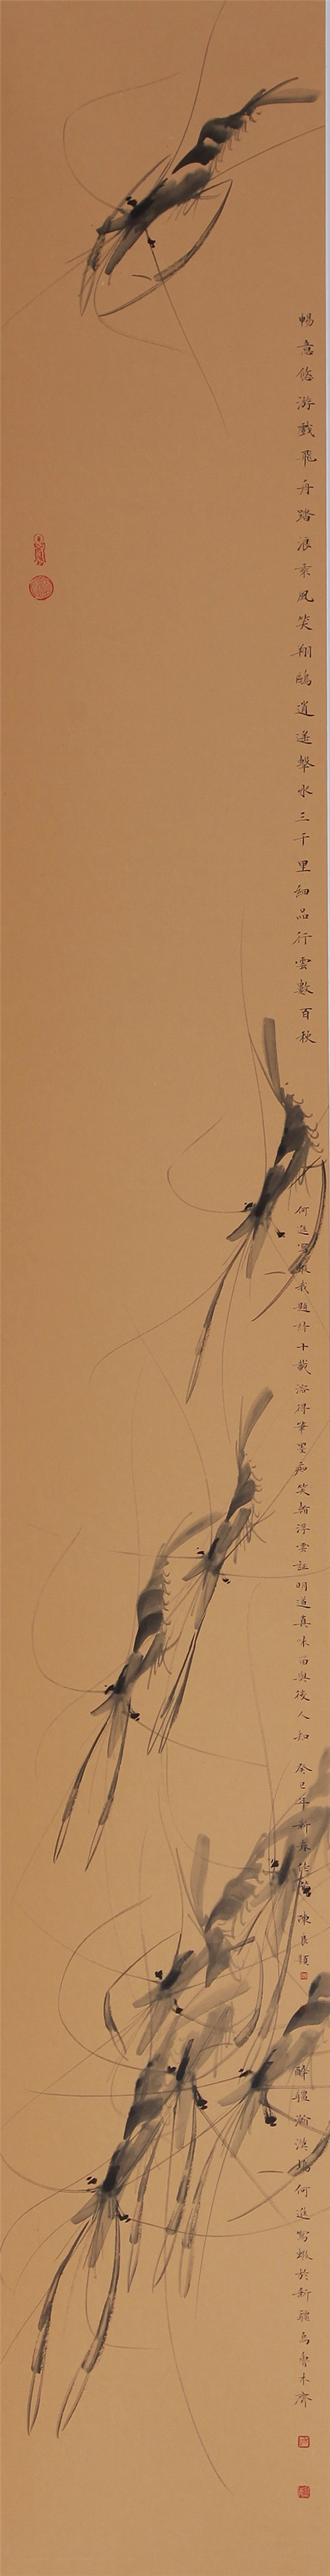 暢意悠游戲飛舟踏浪乘風笑翔鷗逍遥擊水三千里細品行雲數百秋
何進寫蝦我題詩十載溶得筆墨痴笑翰浮雲証明道真味留與後人知
癸巳年新春
陳良題
醉蝦瀚漠
何進寫蝦於新疆烏魯木齊